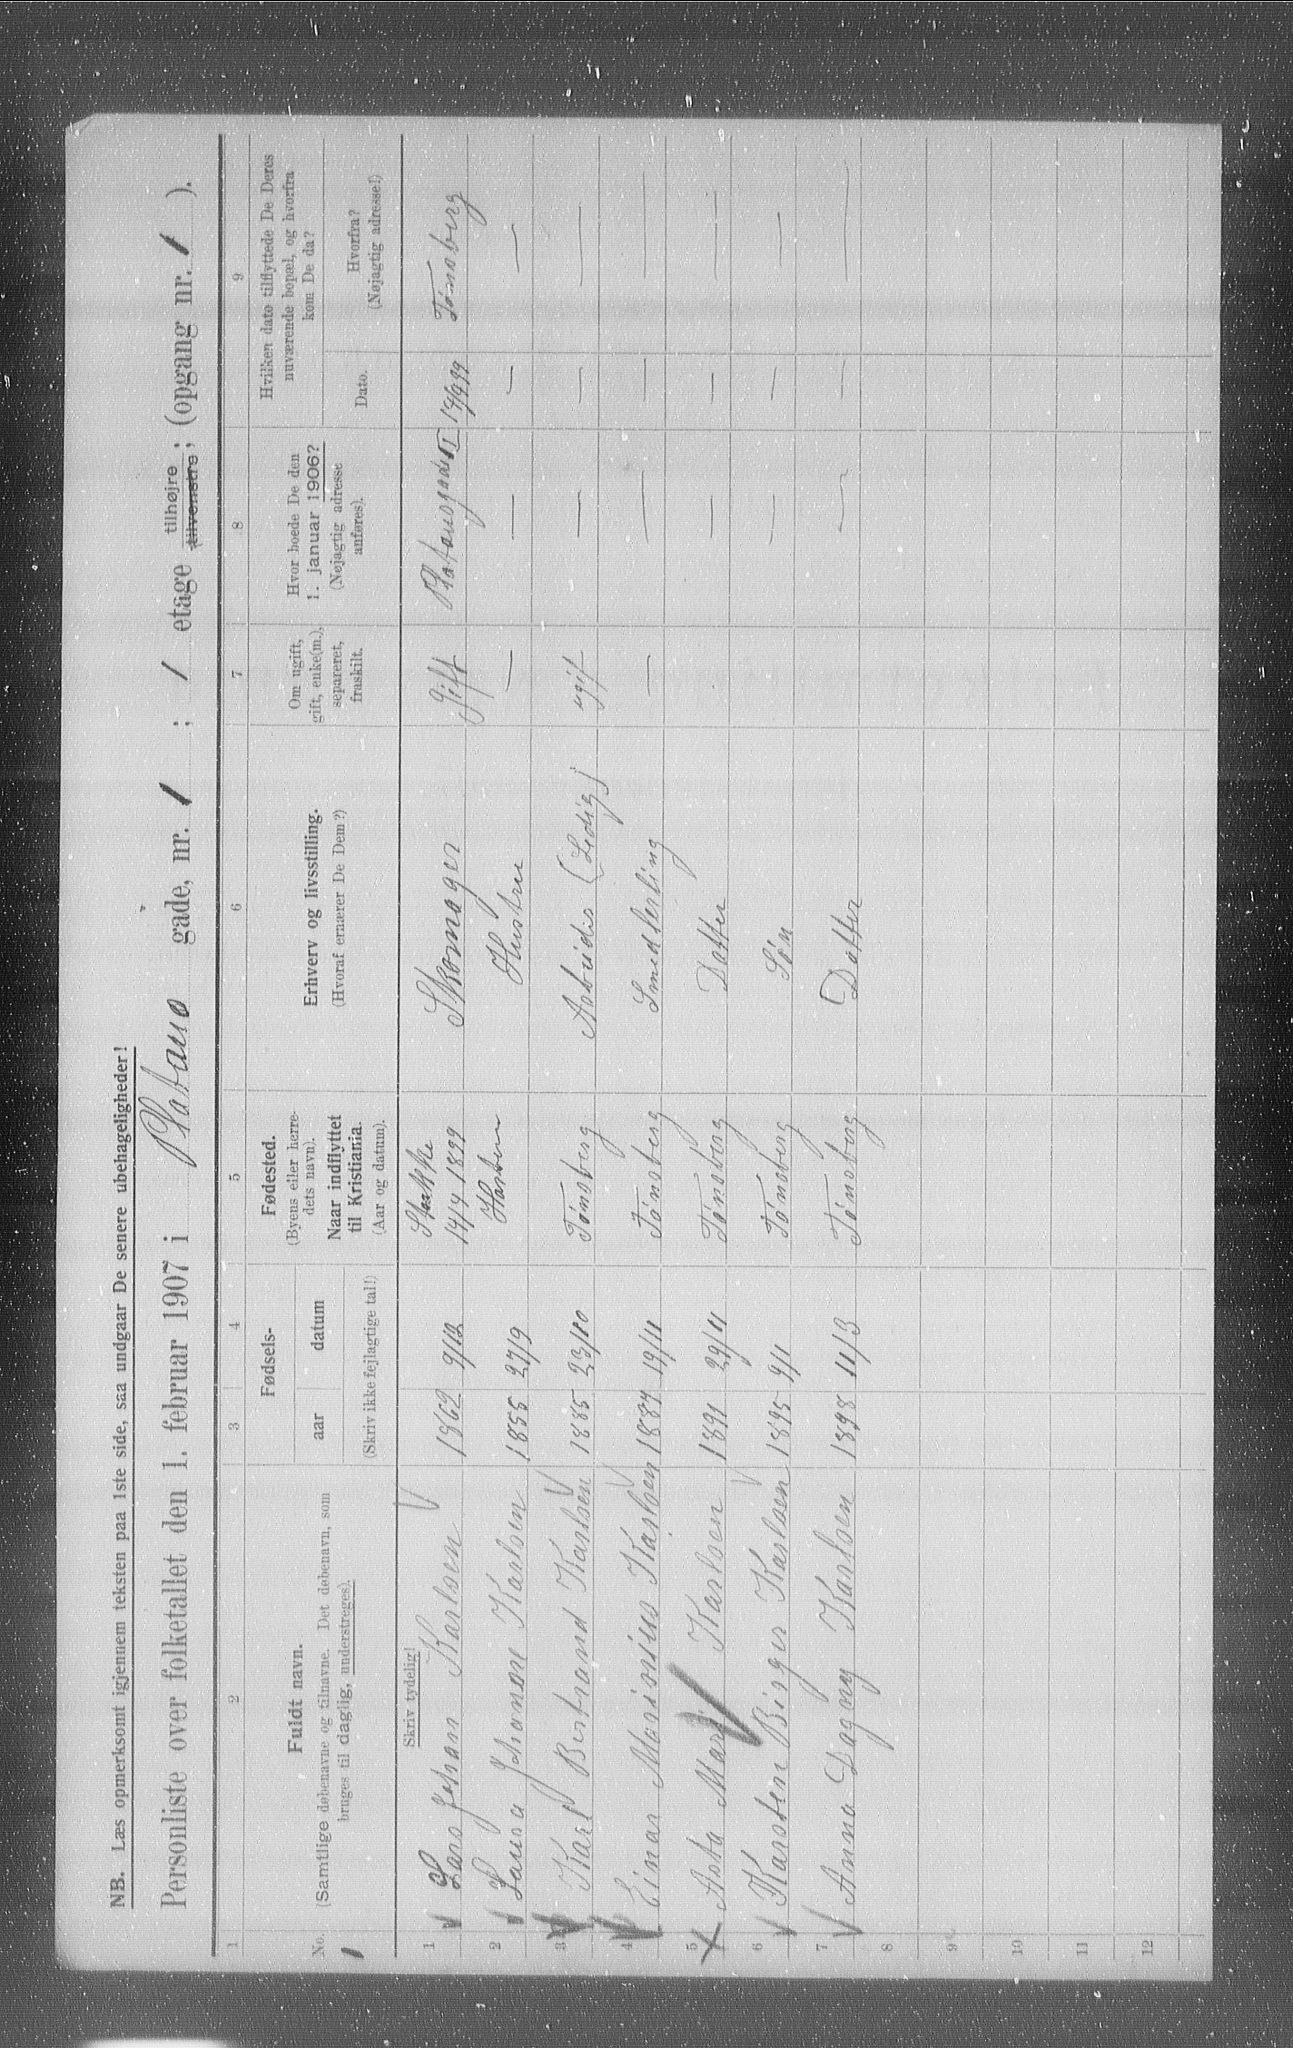 NB. Læs opmerksomt igjennem teksten paa 1ste side, saa undgaar De senere ubehageligheder!
Personliste over folketallet den 1. februar 1907 i Platous gade, nr. 1 ; 1 etage tilhøjre (tilvenstre ; (opgang nr. 1 ).
1 2 3 4 5 6 7 8 9
No.
1
Fuldt navn.
(Samtlige døbenavne og tilnavne. Det døbenavn, som
bruges til daglig, understreges).
Fødsels-
aar datum
(Skriv ikke fejlagtige tal!)
Fødested.
(Byens eller herre-
dets navn).
Naar indflyttet
til Kristiania.
(Aar og datum).
Erhverv og livsstilling.
(Hvoraf ernærer De Dem?)
Om ugift,
gift, enke(m.),
separeret,
fraskilt.
Hvor boede De den
1. januar 1906?
(Nøjagtig adresse
anføres).
Hvilken dato tilflyttede De Deres
nuværende bopæl, og hvorfra
kom De da?
Dato.
Hvorfra?
(Nøjagtig adresse!)
Skriv tydelig!
1 Lars Johan Karlsen 1862 9/12 Stokke 14/4 1899 Skomager Gift Platousgade 14/4 99 Tønsberg
2 Laura Johanne Karlsen 1855 27/9 Hustru — — — —
3 Karl Bertrand Karlsen 1885 23/10 Tønsberg Arbeider (Ledig) ugift — — —
4 Einar Marinius Karlsen 1887 19/11 Tønsberg Smedlerling — — — —
5 Asta Marie Karlsen 1891 29/11 Tønsberg Datter — — —
6 Karsten Birger Karlsen 1895 9/1 Tønsberg Søn — — —
7 Anna Dagny Karlsen 1898 11/3 Tønsberg Datter — — —
8
9
10
11
12